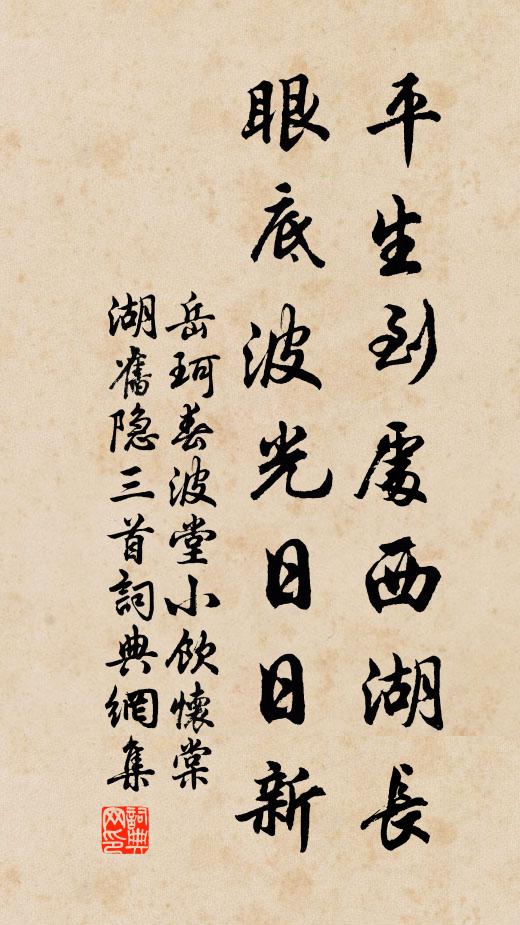 平生到處西湖長
眼底波光日日新
岳珂春波堂小飲懷棠
湖舊隐三首詞典網集
詞典网印